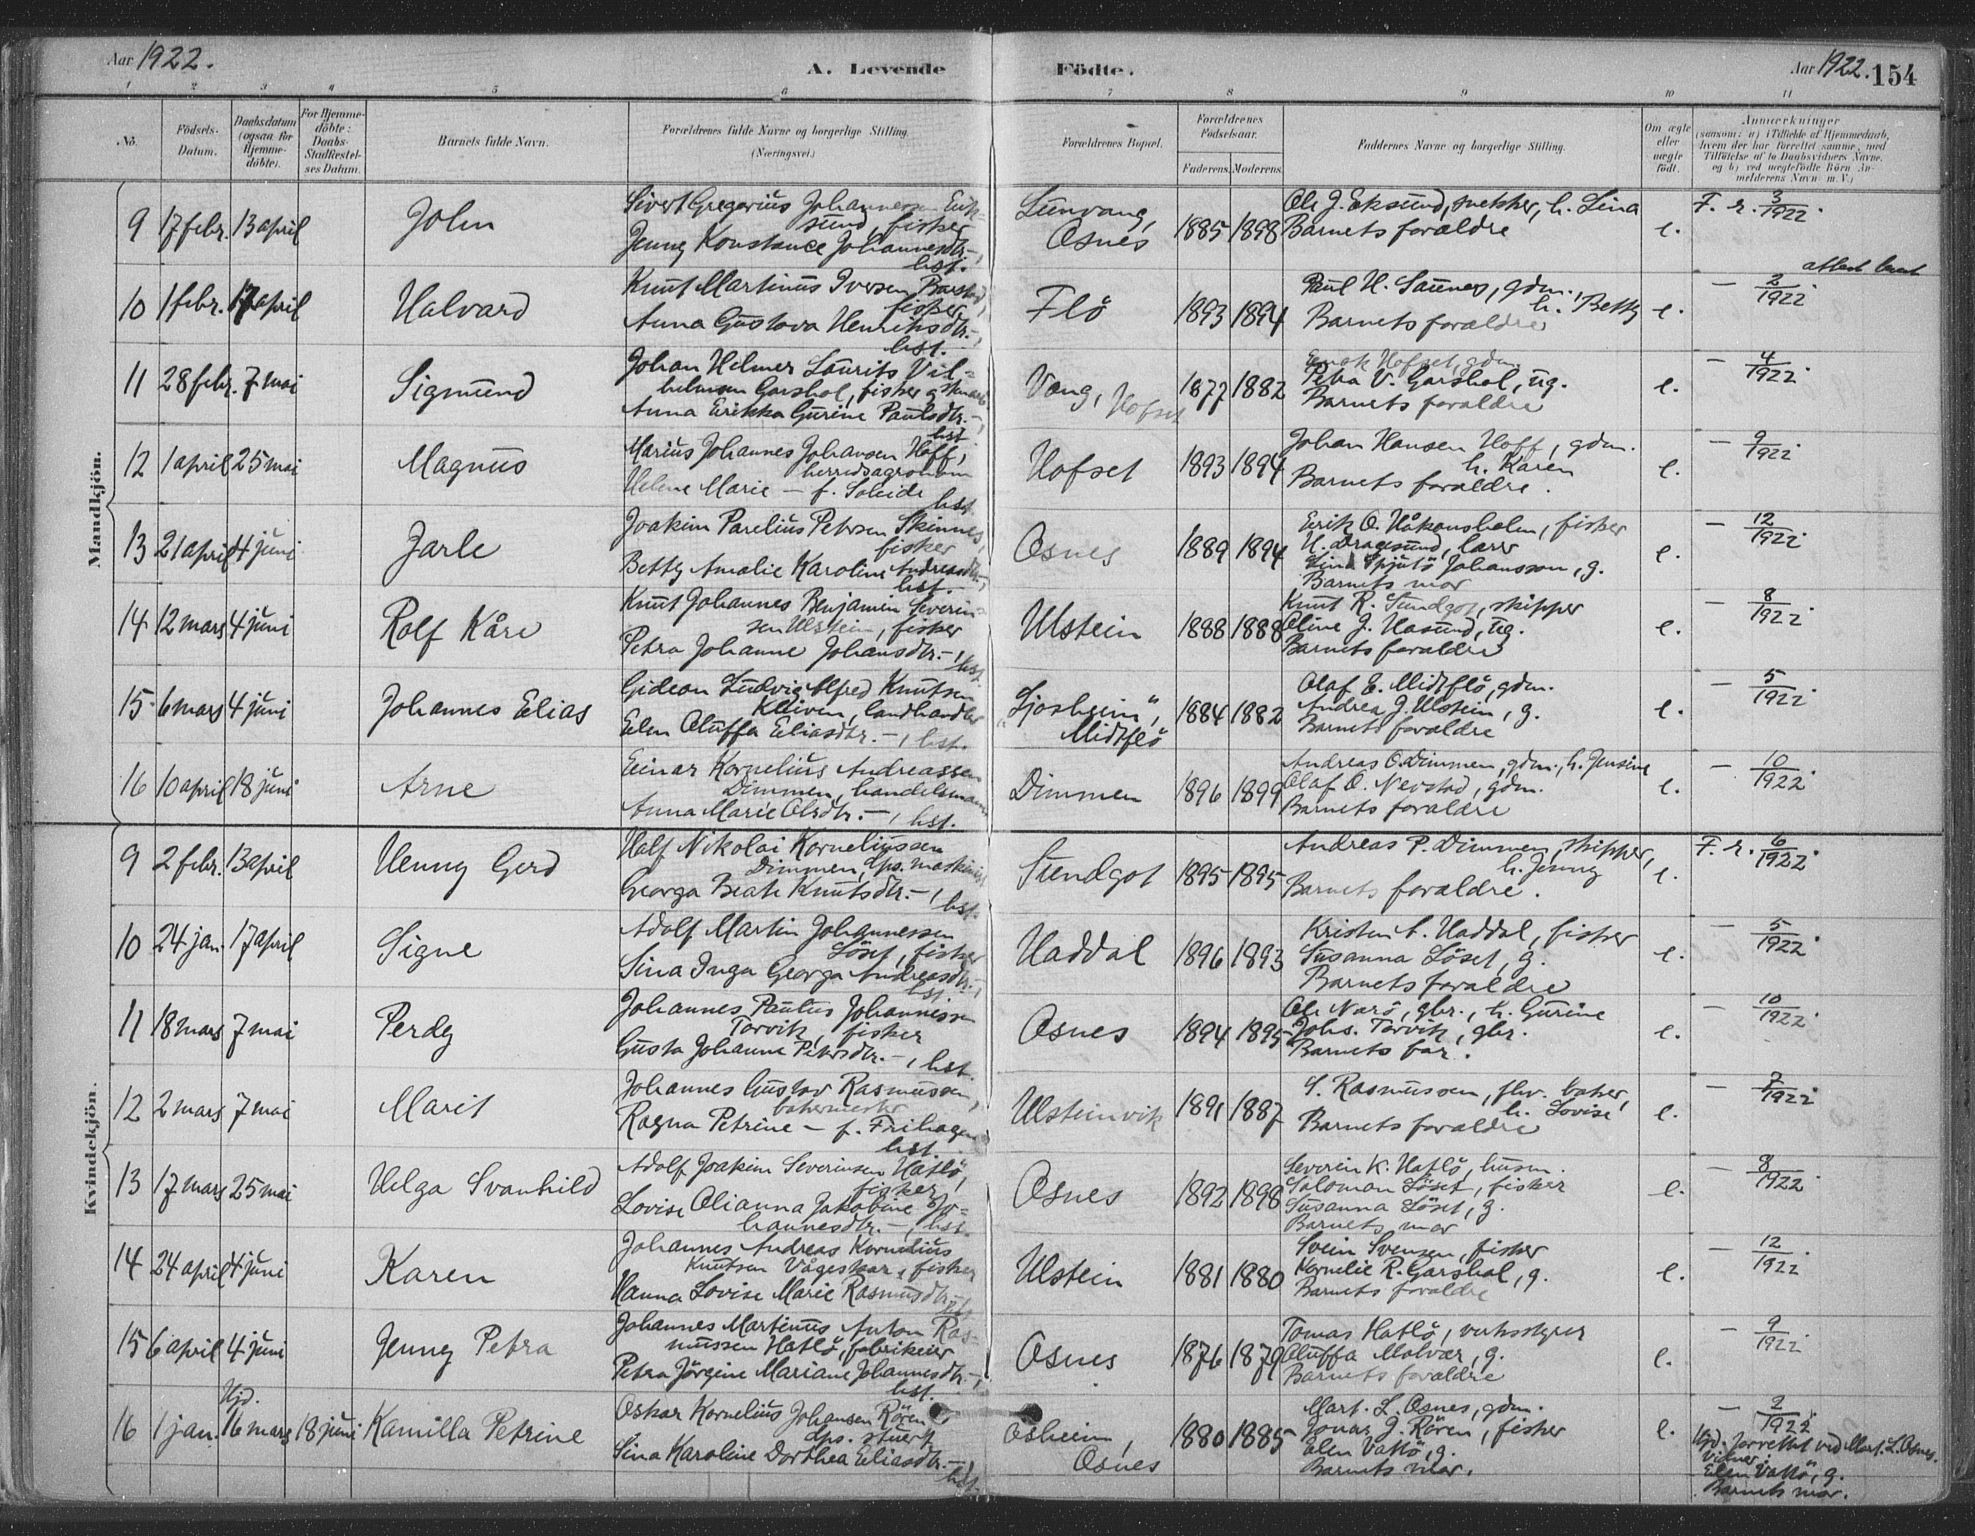 Aar 1922. A. Levende Födte. Aar 1922. 154
1 2 3 4 5 6 7 8 9 10 11
No. Födsels-Datum. Daabsdatum (ogsaa for Hjemme-döbte). For Hjemme-döbte: Daabs-Stadfæstel-ses Datum. Barnets fulde Navn. Forældrenes fulde Navne og borgerlige Stilling. (Næringsvei.) Forældrenes Bopæl. Forældrenes Fødselsaar. Faderens. Moderens. Faddernes Navne og borgerlige Stilling. Om ægte eller uægte født. Anmærkninger (saasom: a) i Tilfælde af Hjemmedaab, hvem der har forrettet samme, med Tilføielse af to Daabsvidners Navne, og b) ved uægtefødte Börn An-melderens Navn m. V.)
Mandkjön.
9 17 febr. 13 april John
Sivert Gregorius Johannessen Eik-
sund, fisker
Jenny Konstance Johannesdtr. –, hst.
Osnes 1885 1898
Ole J. Eksund, snekker, h. Lina
Barnets foræeldre
e. F. r. 3/1922.
10 1 febr. 17 april Halvard
Knut Martinus Iversen Barstad, fisker,
Anna Gustava Henriksdtr. –, hst.
Flö 1893 1894
Paul H. Saunes, gdm., h. Betty
Barnets forældre
e. – 2/1922. attest sendt
11 28 febr. 7 mai Sigmund
Johan Helmer Laurits Vil-
helmsen Garshol, fisker
Anna Erikka Gurine Paulsdtr. –, hst
Vang, Hofset 1877 1882
Hofset, gdm
Petra V. Garshol, ug.
Barnets forældre
e. – 4/1922.
12 1 april 25 mai Magnus
Marius Johannes Johansen Hoff,
herredsagronom
Helene Marie – f. Soleide hst
Hofset 1893 1894
Johan Hansen Hoff, gdm.
h. Karen
Barnets forældre.
e. – 9/1922
13 21 april 4 juni Jarle
Joakim Parelius Petersen Skinnes,
fisker
Betty Amalie Karoline Andreasdtr. –, hst.
Osnes 1889 1894
Eirik O. Håkonsholm, fisker
H. Dragesund, lærer
Lina Johansson, g.
Barnets mor
e. – 12/1922.
14 12 mars 4 juni Rolf Kåre
Knut Johannes Benjamin Severin-
sen Ulstein, fisker
Petra Johanne Johansdtr. –, hst.
Ulstein 1888 1888
Knut R. Sundgot, skipper
Oline J. Hasund, ug.
Barnets forældre
e. – 8/1922
15 6 mars 4 juni Johannes Elias
Gideon Ludvig Alfred Knutsen
Kleven, landhandler
Elen Oluffa Eliasdtr. –, hst.
"Ljosheim",
Midtflö 1884 1882
Olaf E. Midtflö, gdm.
Andrea J. Ulstein, g.
Barnets forældre
e. – 5/1922.
16 10 april 18 juni Arne
Einar Kornelius Andreassen
Dimmen, handelsmann
Anna Marie Olsdtr. –, hst.
Dimmen 1896 1899
Andreas O. Dimmen, gdm., h. Jensine
Olaf O. Nevstad, gdm.
Barnets forældre
e. – 10/1922.
Kvindekjön.
9 2 febr. 13 april Henny Gerd
Half Nikolai Korneliussen
Dimmen, dps. maskinist
Georga Beate Knutsdtr. –, hst.
Sundgot 1895 1895
Andreas P. Dimmen, skipper,
h. Jenny
Barnets forældre.
e. F. r. 6/1922.
10 24 jan. 17 april Signe
Adolf Martin Johannessen
Löset, fisker
Sina Inga Georga Andreasdtr. –, hst.
Haddal 1896 1893
Kristen C. Haddal, fisker
Susanna Löset, g.
Barnets forældre
e. – 5/1922.
11 18 mars 7 mai Perdy
Johannes Paulus Johannessen
Torvik, fisker
Gusta Johanna Petersdtr. –, hst.
Osnes 1894 1895
Ole Nærö, gbr., h. Gurine
Johs. Torvik, gbr.
Barnets far.
e. – 10/1922.
12 2 mars 7 mai Marit
Johannes Gustav Rasmussen,
bakermester
Ragna Petrine – f. Frihagen hst.
Ulsteinvik 1891 1887
S. Rasmussen, fhv. baker,
h. Lovise
Barnets forældre
e. – 7/1922
13 17 mars 25 mai Helga Svanhild
Adolf Joakim Severinsen Hatlö,
fisker,
Lovise Olianna Jakobine Jo-
hannesdtr. –, hst.
Osnes 1892 1898
Severin K. Hatlö, husm.
Salomon Löset, fisker
Susanna Löset, g.
Barnets mor
e. – 8/1922.
14 24 april 4 juni Karen
Johannes Andreas Kornelius
Knutsen Vågeskar, fisker
Hanna Lovise Marie Rasmusdtr. hst
Ulstein 1881 1880
Svein Svensen, fisker
Kornelie R. Garshol, g.
Barnets forældre
e. – 12/1922.
15 6 april 4 juni Jenny Petra
Johannes Martinus Anton Ras-
mussen Hatlö, fabrikeier
Petra Jörgine Mariane Johannesdtr. –, hst.
Osnes 1876 1879
Tomas Hatlö,
Oluffa Malvær, g.
Barnets forældre
e. – 9/1922.
16 1 jan. Hjd. 16 mars 18 juni Kamilla Petrine
Oskar Kornelius Johansen Rören
dps. stuert
Sina Karoline Dorthea Eliasdtr. –, hst.
Osheim,
Osnes 1880 1885
Mart. L. Osnes, gdm.
Jonas J. Rören, fisker
Elen Vattö, g.
Barnets mor.
e. – 2/1922.
Hjd. forrettet ved Mart. L. Osnes.
Vitner:
Elen Vattö, g.
Barnets mor.